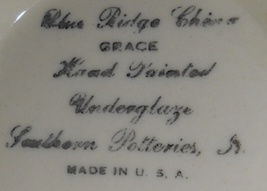 Blue Ridge China
GRACE
Hand Painted
Underglaze
Southern Potteries, Ir.
MADE IN U. S. A.